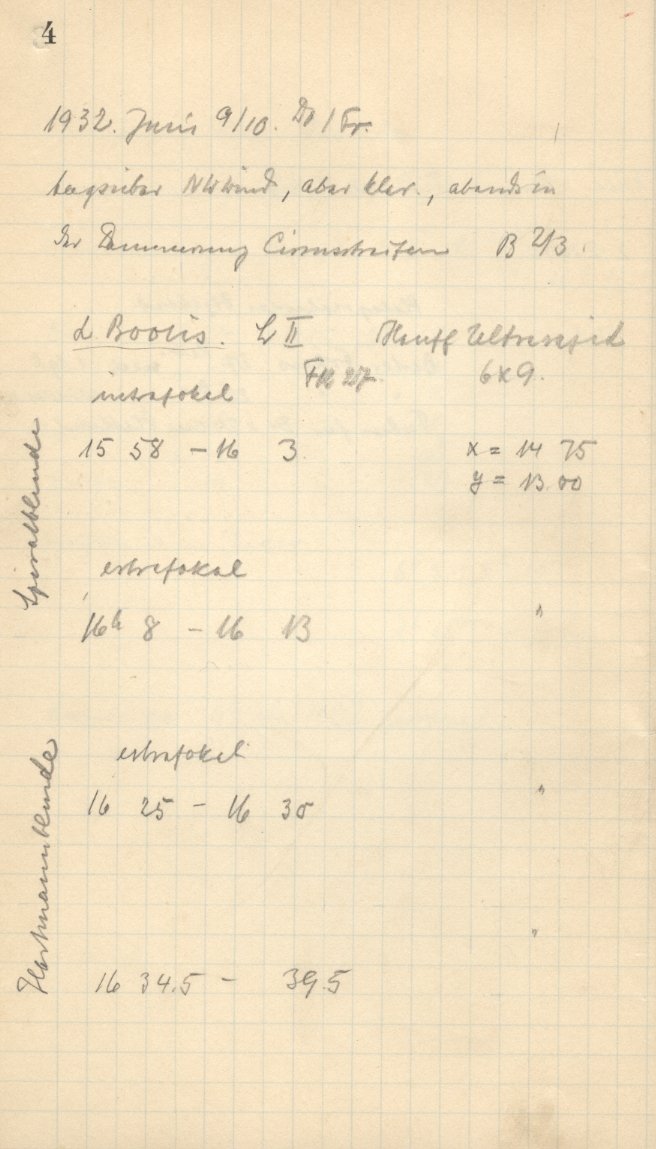 4
1932. Juni 9/10. Do/Fr.
tagsüber NWwind, aber klar., abends in
der Dämmerung Cirrusstreifen B 2/3.
α Bootis. L II Hauff Ultrarapid
intrafokal FK 27 6x9.
Spiralblende
15 58 – 16 3. x = 14 75
y = 13.00
extrafokal
16h 8 – 16 13 "
Hartmannblende
extrafokal
16 25 – 16 30 "
"
16 34.5 – 39.5